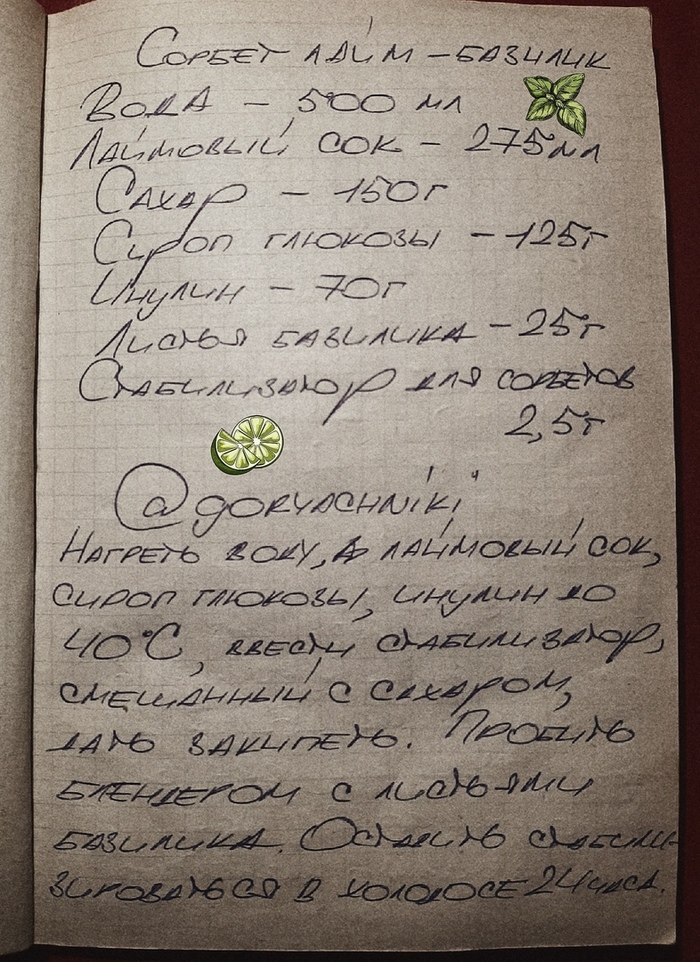 Сорбет лайм - базилик
Вода - 500 мл
Лаймовый сок - 275 мл
Сахар - 150г
Сироп глюкозы - 125г
Инулин - 70г
Листья базилика - 25г
Стабилизатор для сорбетов
2,5г
@goryachniki
Нагреть воду, лаймовый сок,
сироп глюкозы, инулин до
40°C, ввести стабилизатор,
смешанный с сахаром,
дать закипеть. Пробить
блендером с листьями
базилика. Оставить стабили-
зироваться в холодосе 24 часа.